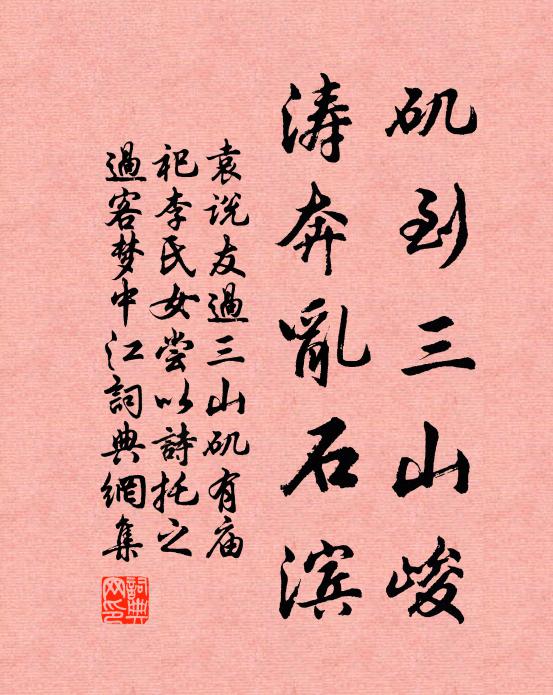 矶到三山峻
涛奔亂石滨
袁说友過三山矶有庙
祀李氏女尝以詩托之
過客梦中江詞典網集
詞典网印